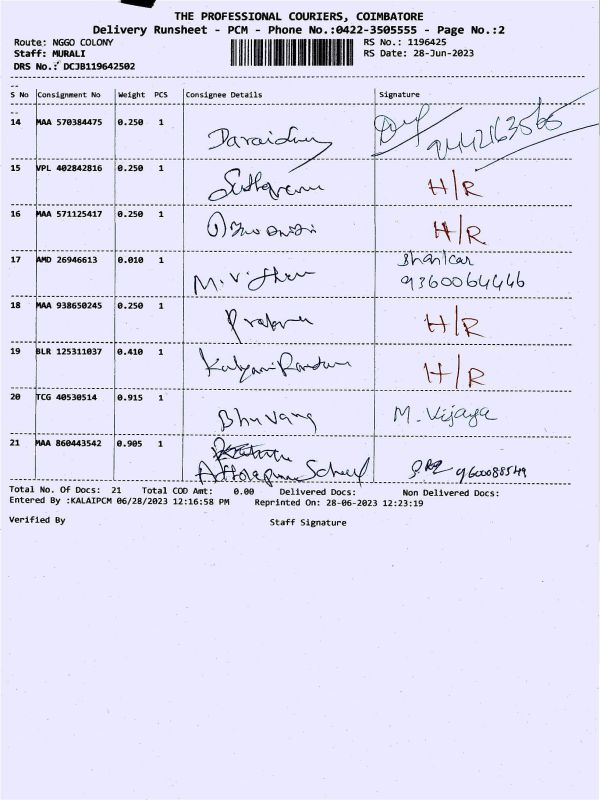 THE PROFESSIONAL COURIERS, COIMBATORE
Delivery Runsheet - PCM - Phone No.:0422-3505555 - Page No.:2
Route: NGGO COLONY
RS No.: 1196425
Staff: MURALI
RS Date: 28-Jun-2023
DRS No.: DCJB119642502
S No Consignment No Weight PCS Consignee Details Signature
14 MAA 570384475 0.250 1
15 VPL 402842816 0.250 1 H/R
16 MAA 571125417 0.250 1 H/R
17 AMD 26946613 0.010 1 Shankar
9360064446
18 MAA 938650245 0.250 1 Prabhu H/R
19 BLR 125311037 0.410 1 H/R
20 TCG 40530514 0.915 1 Bhuvana M. Vijaya
21 MAA 860443542 0.905 1
9600088549
Total No. Of Docs: 21 Total COD Amt: 0.00 Delivered Docs: Non Delivered Docs:
Entered By :KALAIPCM 06/28/2023 12:16:58 PM Reprinted On: 28-06-2023 12:23:19
Verified By Staff Signature